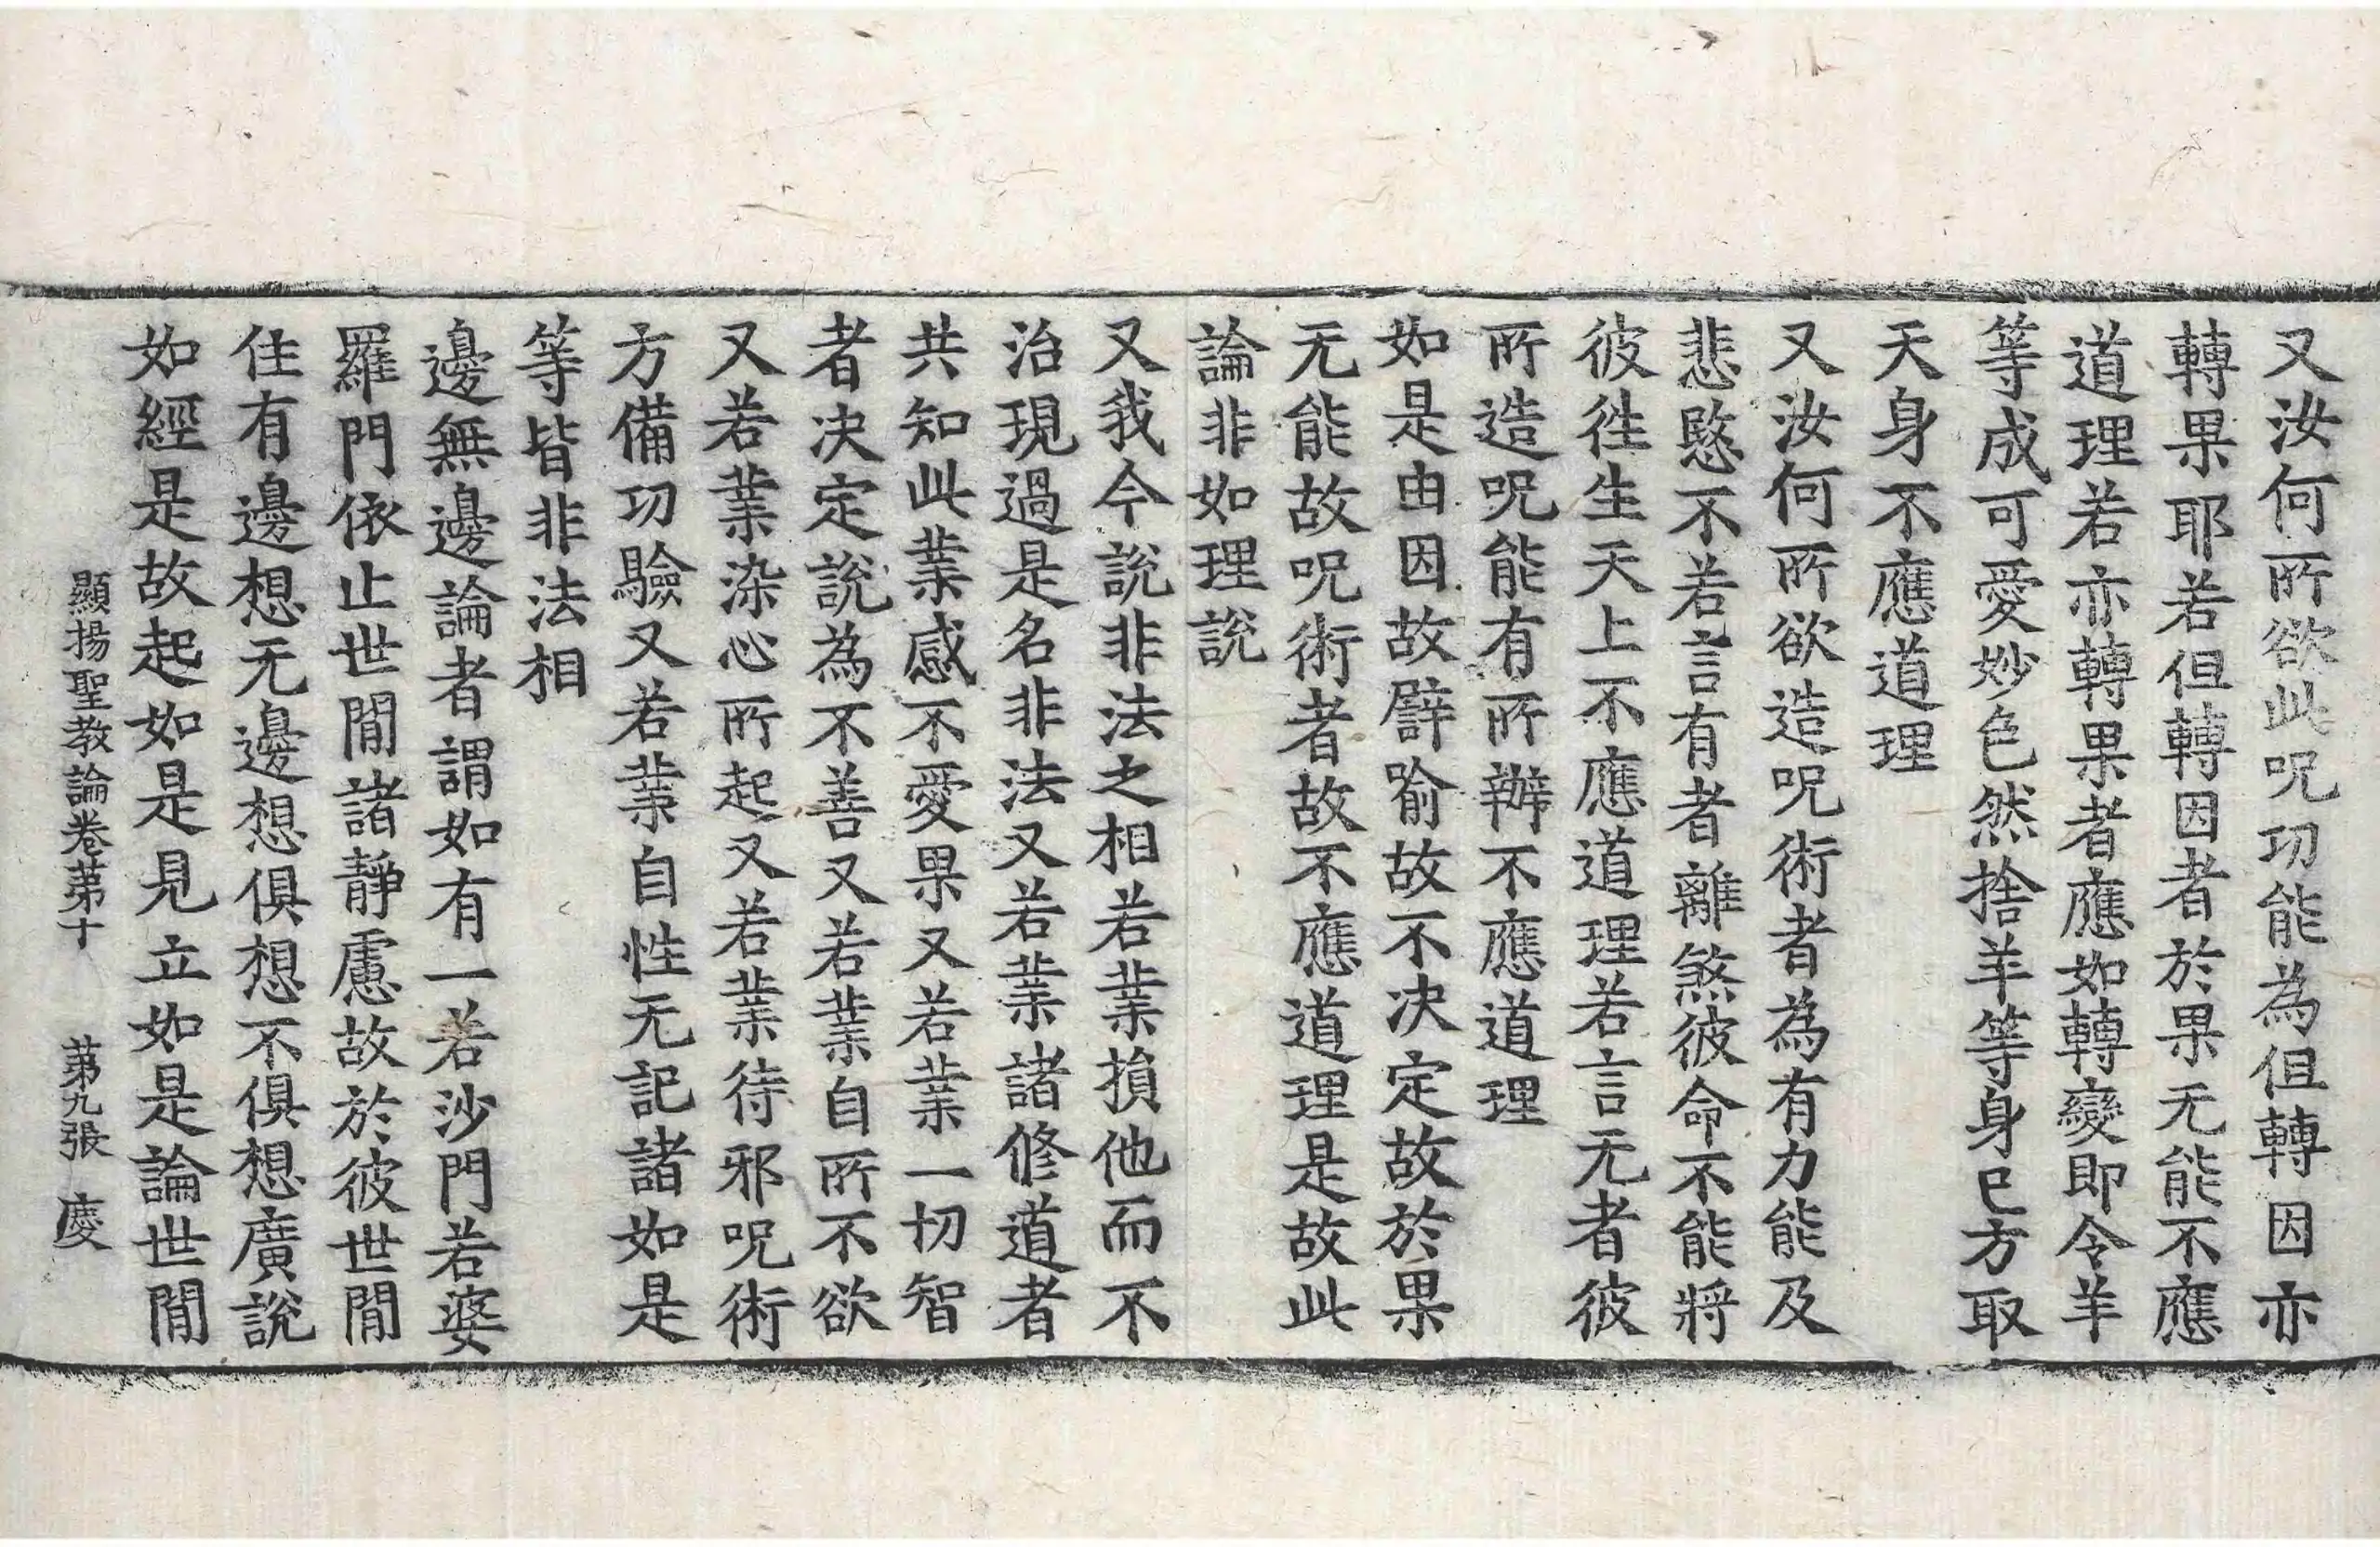 又汝何所欲此呪功能為但轉因亦
轉果耶若但轉因者於果无能不應
道理若亦轉果者應如轉變即令羊
等成可愛妙色然捨羊等身已方取
天身不應道理
又汝何所欲造呪術者為有力能及
悲愍不若言有者離煞彼命不能將
彼徃生天上不應道理若言无者彼
所造呪能有所辦不應道理
如是由因故譬喻故不决定故於果
无能故呪術者故不應道理是故此
論非如理說
又我今說非法之相若業損他而不
治現過是名非法又若業諸修道者
共知此業感不愛果又若業一切智
者决定說為不善又若業自所不欲
又若業染心所起又若業待邪呪術
方備功驗又若業自性无記諸如是
等皆非法相
邊無邊論者謂如有一若沙門若婆
羅門依止世間諸靜慮故於彼世間
住有邊想无邊想俱想不俱想廣說
如經是故起如是見立如是論世間
顯揚聖教論卷苐十 苐九張 慶